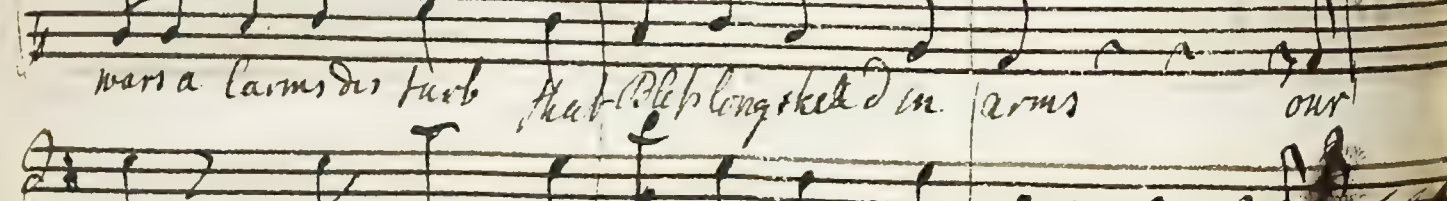 wars a larms dis turb that Bless long skill'd in arms our